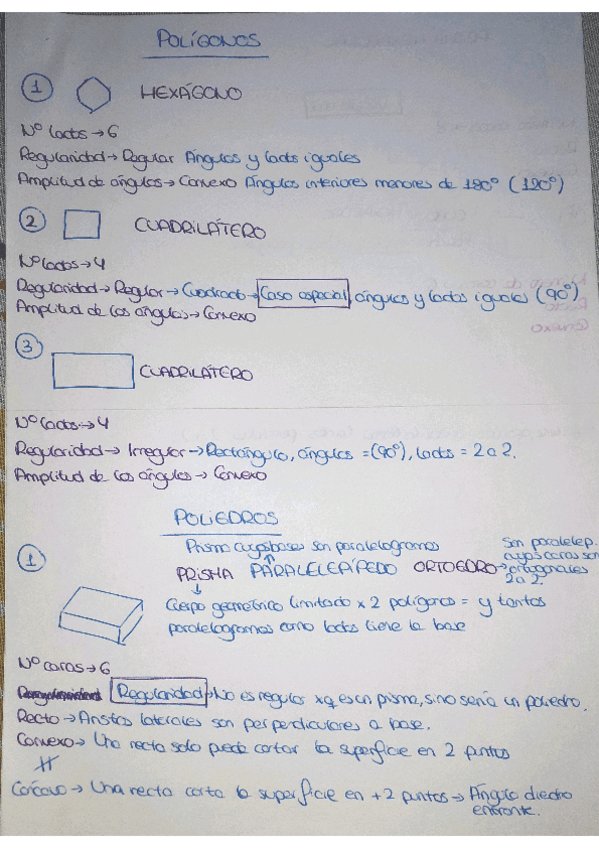 POLÍGONOS
1 HEXÁGONO
Nº lados → 6
Regularidad → Regular Ángulos y lados iguales
Amplitud de ángulos → Convexo Ángulos interiores menores de 180º (120º)
2 CUADRILÁTERO
Nº lados → 4
Regularidad → Regular → Cuadrado → Caso especial, ángulos y lados iguales (90º)
Amplitud de los ángulos → Convexo
3
CUADRILÁTERO
Nº lados → 4
Regularidad → Irregular → Rectángulo, ángulos = (90º), lados = 2 a 2.
Amplitud de los ángulos → Convexo
POLIEDROS
Prisma cuyas bases son paralelogramos
Son paralelep.
cuyas caras son
ortogonales
2 a 2.
1 PRISMA PARALELEPÍPEDO ORTOEDRO →
Cuerpo geométrico limitado x 2 polígonos = y tantos
paralelogramos como lados tiene la base
Nº caras → 6
Regularidad → No es regular xq es un prisma, sino sería un poliedro.
Recto → Aristas laterales son perpendiculares a base.
Convexo → Una recta solo puede cortar la superficie en 2 puntos
Cóncavo → Una recta corta la superficie en +2 puntos → Ángulo diedro
entrante.